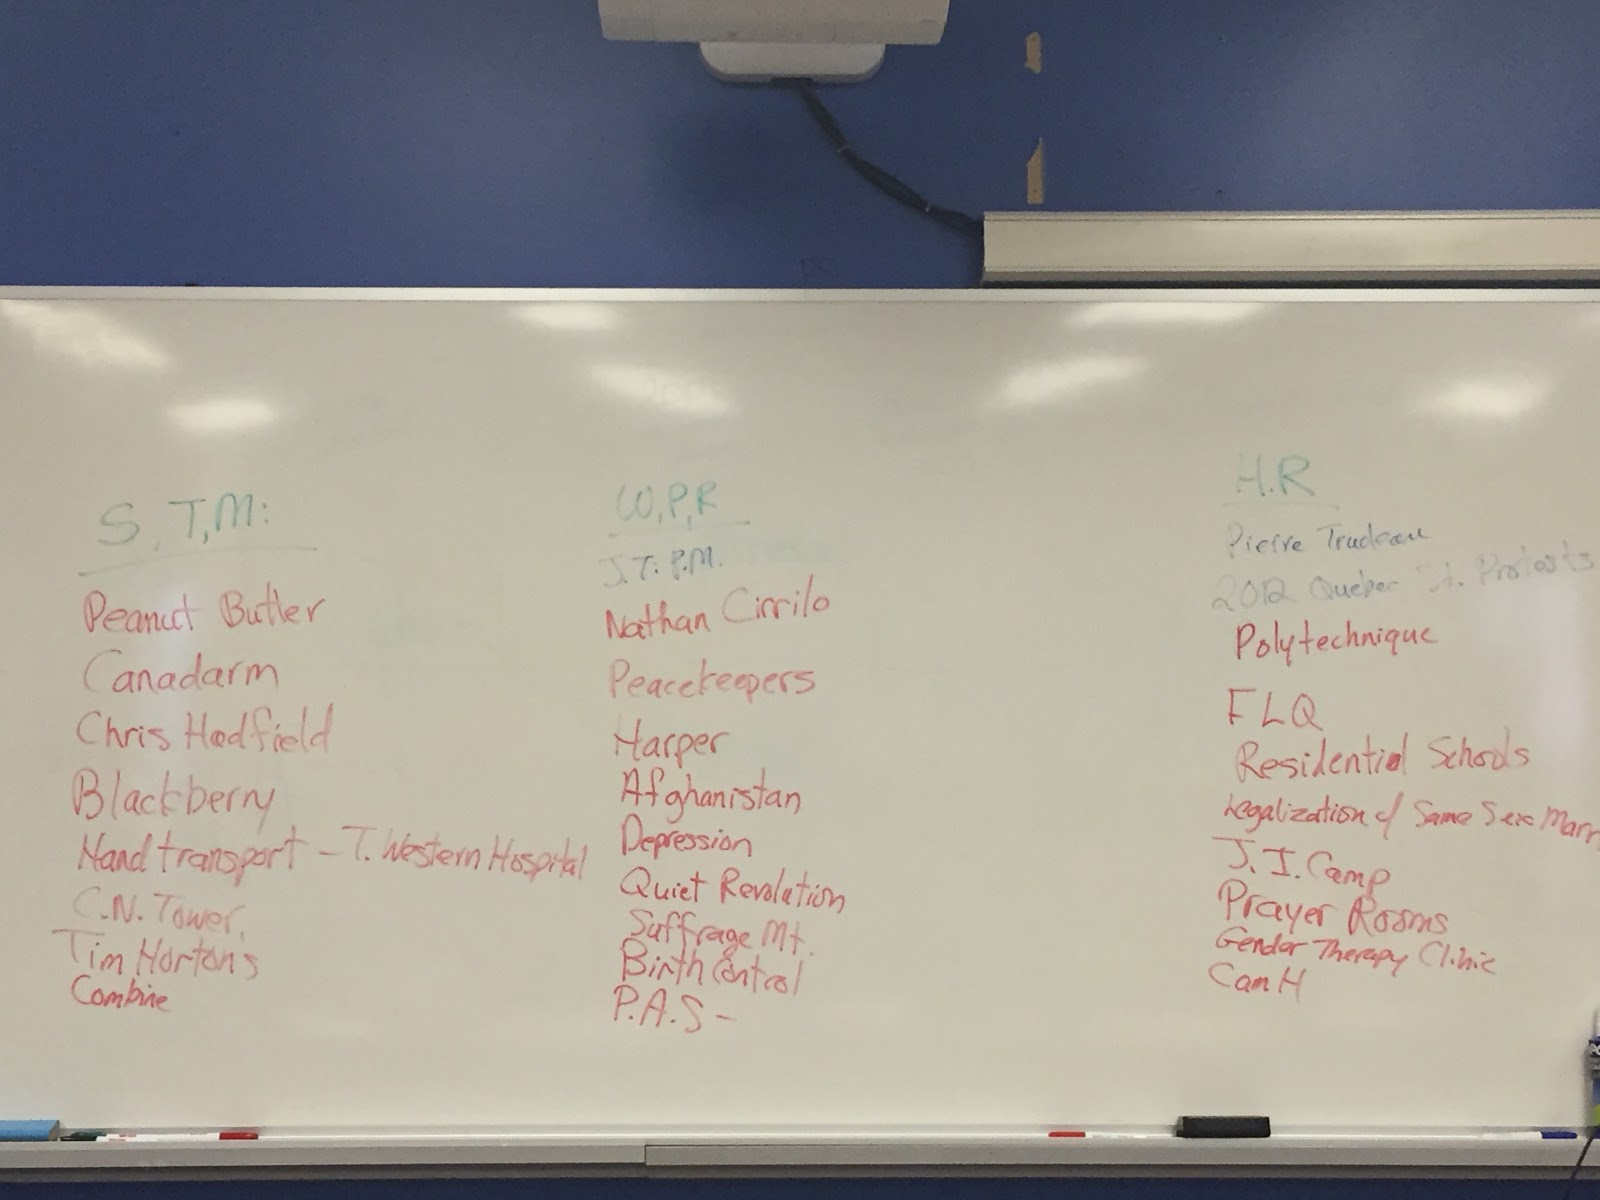 S,T,M:
Peanut Butter
Canadarm
Chris Hadfield
Blackberry
Hand transport - T. Western Hospital
C.N. Tower,
Tim Horton's
Combine
W,P,R
J.T. P.M.
Nathan Cirrilo
Peacekeepers
Harper
Afghanistan
Depression
Quiet Revolution
Suffrage Mt.
Birth Control
P.A.S -
H.R
Pierre Trudeau
2012 Quebec St. Protests
Polytechnique
FLQ
Residential Schools
Legalization of Same Sex Marr
J. I. Camp
Prayer Rooms
Gender Therapy Clinic
CamH